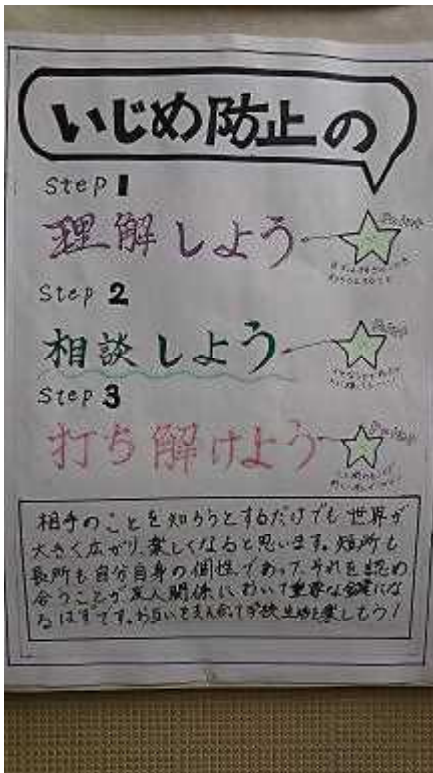 いじめ防止の
Step 1
理解しよう
Point
Step 2
相談しよう
Point
Step 3
打ち解けよう
Point
相手のことを知ろうとするだけでも世界が
大きく広がり、楽しくなると思います。短所も
長所も自分自身の個性であって、それを認め
合うことが友人関係において重要な鍵にな
るはずです。お互いを支え合って学校生活を楽しもう!